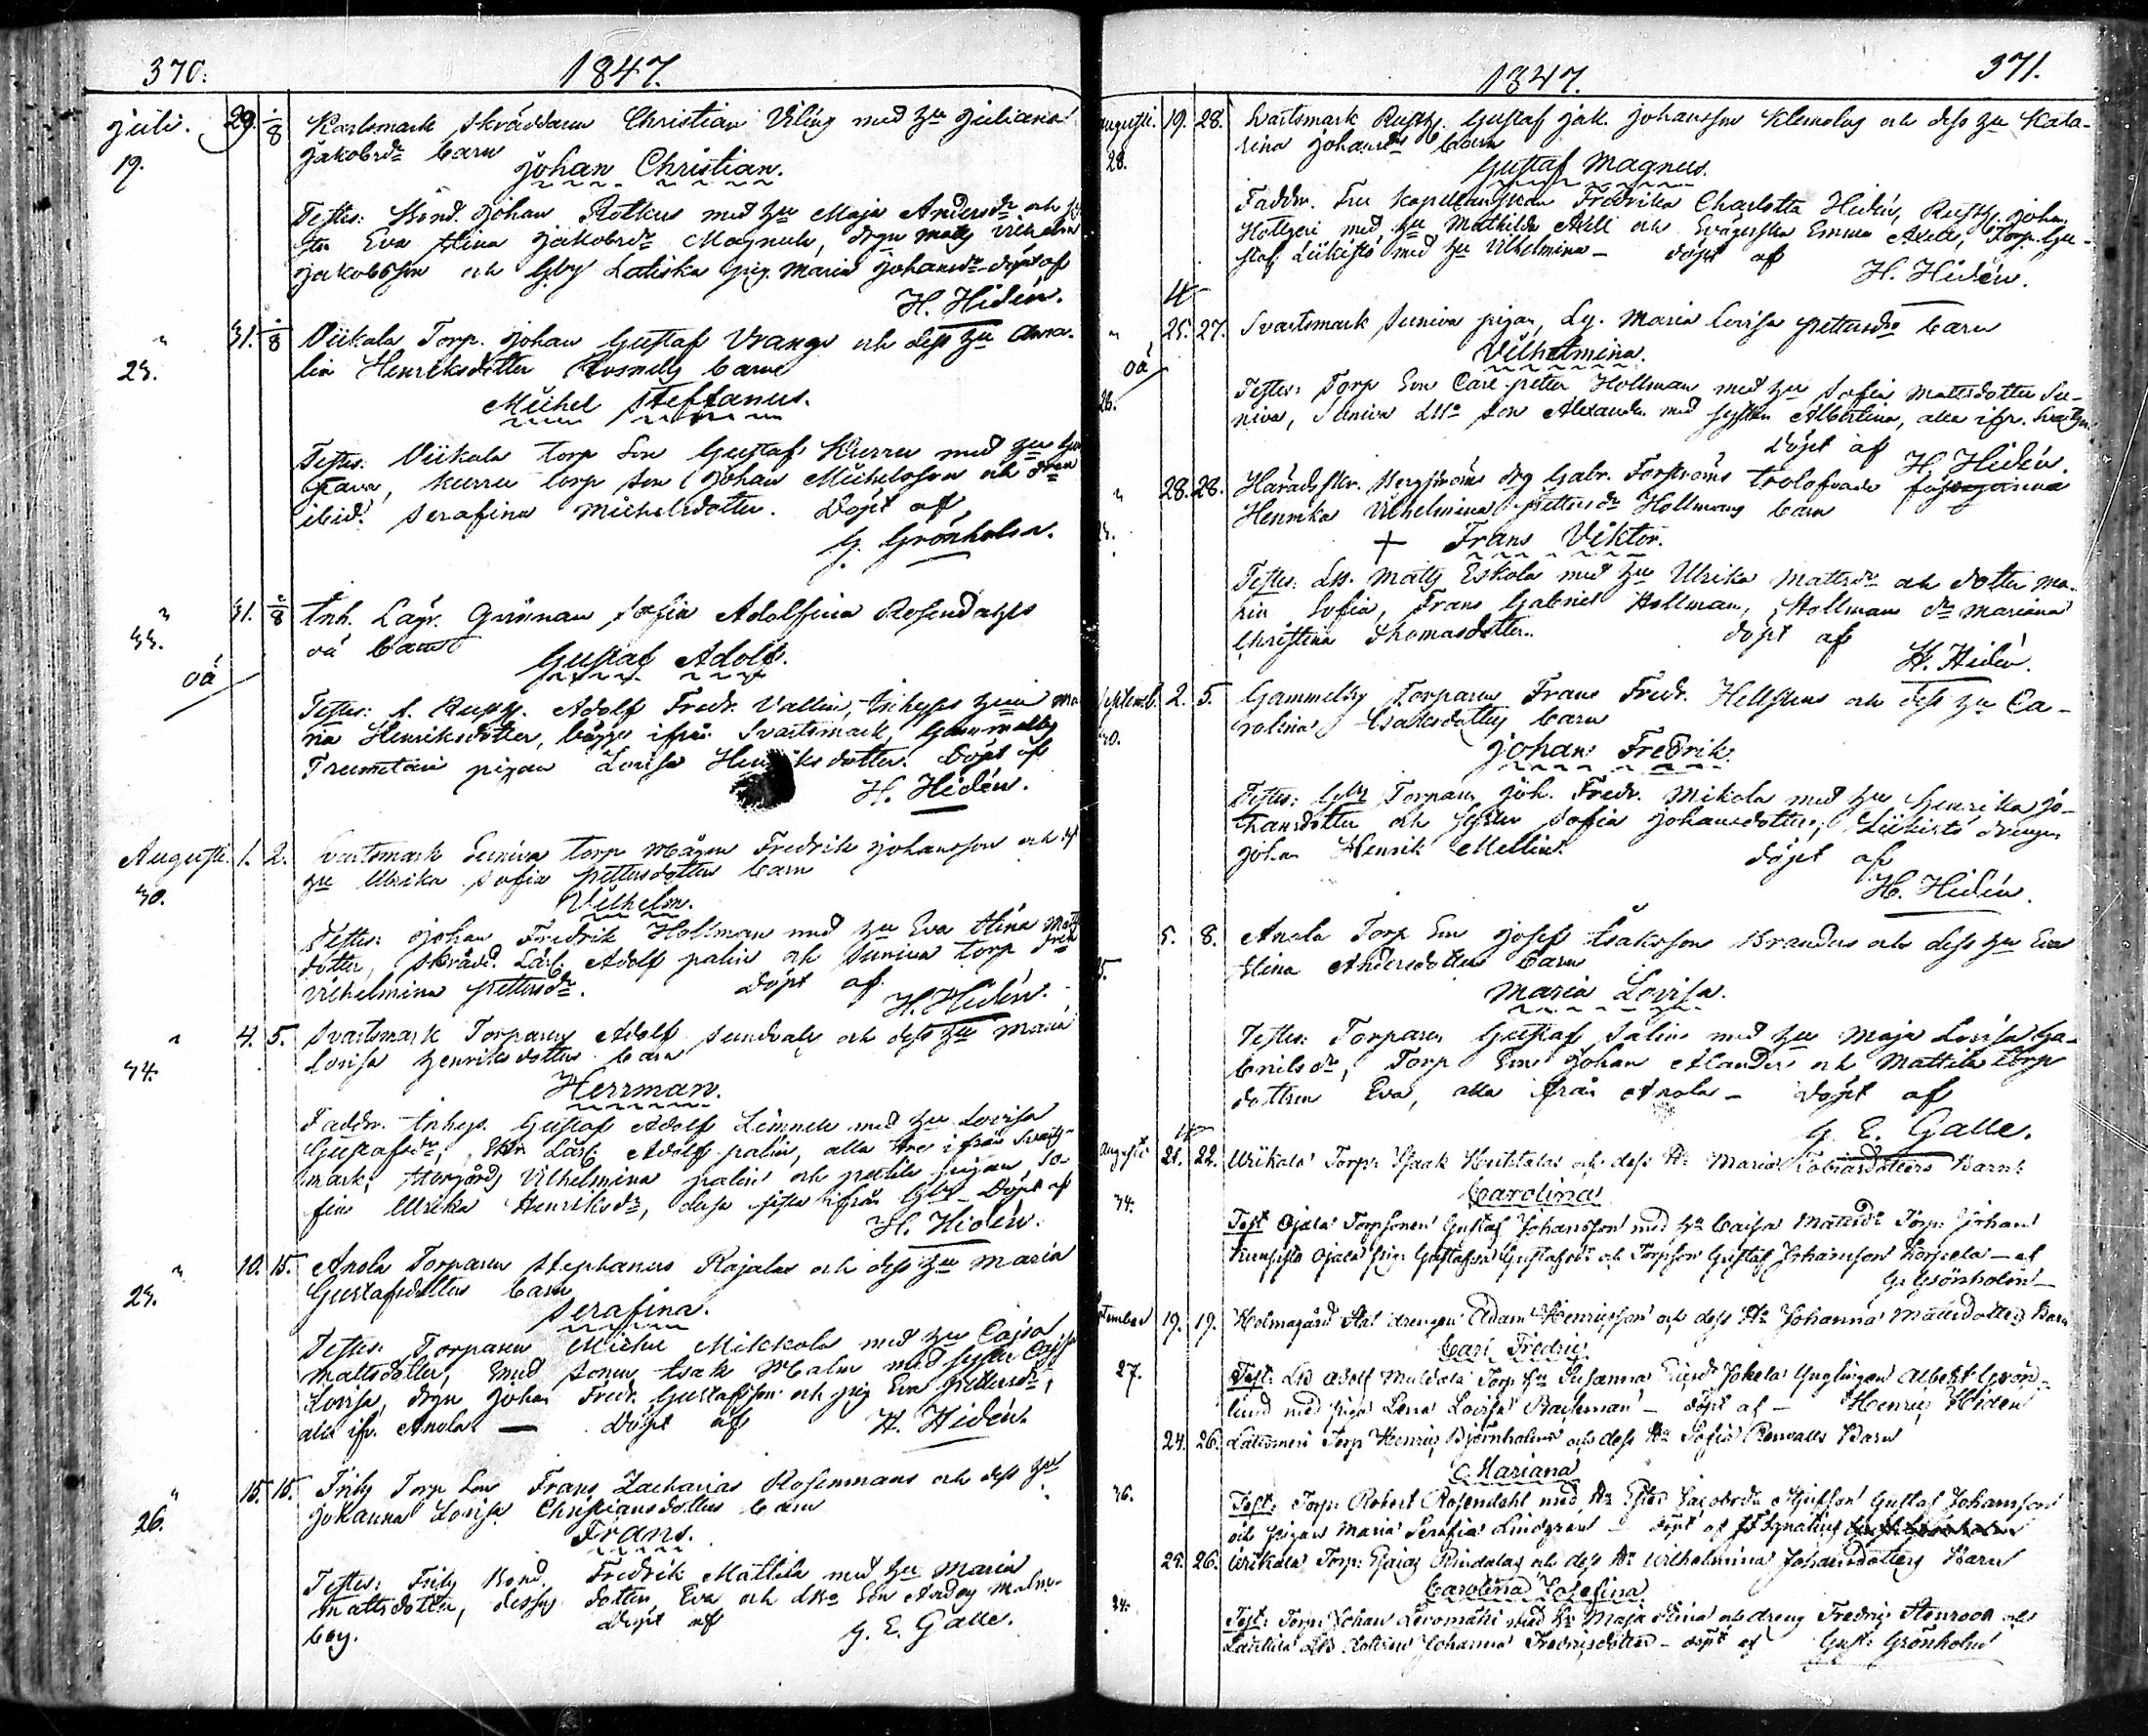 370.
1847.
Juli. 29. 1/8 Karlsmark skräddaren Christian Viling med hu Juliana
19. Jakobsdr barn
Johan Christian.
Testes: Bond. Johan Rotkus med hu Maja Andersdr och
Eva Stina Jakobsdr Magnula, drgn Matts Vilhelm
Jakobsson och Gby Latiska pig. Maria Johansdr döpt af
H. Hidén.
" 31. 1/8 Viikala Torp. Johan Gustaf Vrange och dess hu Ama-
23. lia Henriksdotter Rosnells barn
Michel Steffanus.
Testes: Viikala torp son Gustaf Kurru med hu
Kurru torp son Johan Michelsson och
ibid. Serafina Michelsdotter. Döpt af
G. Grönholm.
" 31. 2/8 Inh. Lägr. Sofia Adolfina Rosendahls
33. oä barn
oä
Gustaf Adolf.
Testes: A. Rusth. Adolf Fredr. Vallin, Inhyses Ma-
ria Henriksdotter, bägge ifrån Svartsmark, Gammelby
pigan Lovisa Henriksdotter. Döpt af
H. Hidén.
Augusti. 1. 2. Svartsmark Suniva torp mågen Fredrik Johansson och
30. hu Ulrika Sofia Pettersdotters barn
Vilhelm.
Testes: Johan Fredrik Hollman med hu Eva Stina Matts
dotter, skrädd. Lärl. Adolf Palin och Suniva torp
Vilhelmina Pettersdr. Döpt af
H. Hidén.
" 4. 5. Svartsmark Torparen Adolf Sundvalls och dess hu Maria
34. Lovisa Henriksdotters barn
Herrman.
Faddr. Inhys. Gustaf Adolf Limnell med hu Lovisa
Gustafsdr, Skr Lärl. Adolf Palin, alla tre ifrån Svarts-
mark, Vilhelmina Palin och pigan, So-
fia Ulrika Henriksdr, dessa sista ifrån Gby. Döpt af
H. Hidén.
" 10. 15. Anola Torparen Stephanus Rajalas och dess hu Maria
23. Gustafsdotters barn
Serafina.
Testes: Torparen Michel Mikkola med hu Cajsa
Mattsdotter, sonen Isak Malm med syster Cajsa
Lovisa, drgn Johan Fredr. Gustafsson och pig Eva Pettersdr,
alla ifr. Anola — Döpt af H. Hidén.
" 15. 15. Friby Torp Son Frans Zacharias Rosenmans och dess hu
26. Johanna Lovisa Christiansdotters barn
Frans.
Testes: Friby Bond. Fredrik Mattila med hu Maria
Mattsdotter, dessas dotter Eva och son Malm-
berg. Döpt af G. E. Galle.
1847.
371.
Augusti. 19. 28. Svartsmark Rusth. Gustaf Jak. Johansson Klemolas och dess hu Kata-
28. rina Johansdrs barn
Gustaf Magnus.
Faddr. Fru Kapellanskan Fredrika Charlotta Hidén, Rusth. Johan
med hu Mathilda Axell och Svägerska Emma Axell, Torp. Gu-
staf Liikistö med hu Vilhelmina – döpt af
H. Hidén.
" 25. 27. Svartsmark Suniva pigan, Lg. Maria Lovisa Pettersdrs barn
oä
Vilhelmina.
26. Testes: Torp Son Carl Petter Hollman med hu Sofia Mattsdotter Su-
niva, Suniva son Alexander med syster Albertina, alla ifr. Svartsm.
Döpt af H. Hidén.
" 28. 28. Häradsskr. Bergströms drg Gabr. Forsströms trolofvade
Henrika Vilhelmina Pettersdr Hollmans barn
+ Frans Viktor.
Testes: Matts Eskola med hu Ulrika Mattsdr och dotter Ma-
ria Sofia, Frans Gabriel Hollman, Hollman dr Mariana
Christina Thomasdotter. döpt af
H. Hidén.
Septemb. 2. 5. Gammelby Torparen Frans Fredr. Hellstens och dess hu Ca-
30. rolina Isaksdotters barn
Johan Fredrik.
Testes: Gby Torparen Joh. Fredr. Mikola med hu Henrika Jo-
hansdotter och syster Sofia Johansdotter, Liikistö drengen
Johan Henrik Mellin. döpt af
H. Hidén.
5. 8. Anola Torp Son Josef Isaksson Branders och dess hu Eva
Stina Andersdotters barn
Maria Lovisa.
Testes: Torparen Gustaf Sälin med hu Maja Lovisa Ga-
brielsdr, Torp Son Johan Alander och Mattila torp
dottren Eva, alla från Anola – döpt af
G. E. Galle.
Augusti 21. 22. Torp: Isaak och dess Hu Maria Tobiasdotters Barn:
34. Carolina
Test Ojala Torpsonen Gustaf Johansson med hu Caisa Mattsdr Torp: Johan
Ojala pig: Gustafva Gustafsdr och Torpson Gustaf Johansson Korpela – af
G: Grönholm
September 19. 19. Holmagård Stat drengen Adam Henricsson och dess Hu Johanna Mattsdotters Barn
Carl Fredric
27. Test: Adolf Torp Hu Susanna Jokela Ynglingen Albert Grönd-
lund med piga Lena Lovisa – döpt af – Henric Hidén
24. 26. Lattomeri Torp Henric Björnholms och dess Hu Sofia Renvalls Barn
Mariana
36. Test: Torp: Robert Rosendahl med Hu Jacobsdr Gustaf Johansson
och pigan Maria Serafia Lindgren – döpt af Ignatius
25. 26. Torp: Esaias Rindalas och dess Hu Wilhelmina Johansdotters Barn
Carolina Josefina
24. Test: Torp: Johan Levomäki med Hu Maja Stina och dreng Fredric Stenroos och
dottren Johanna Fredricsdotter – döpt af Gust: Grönholm